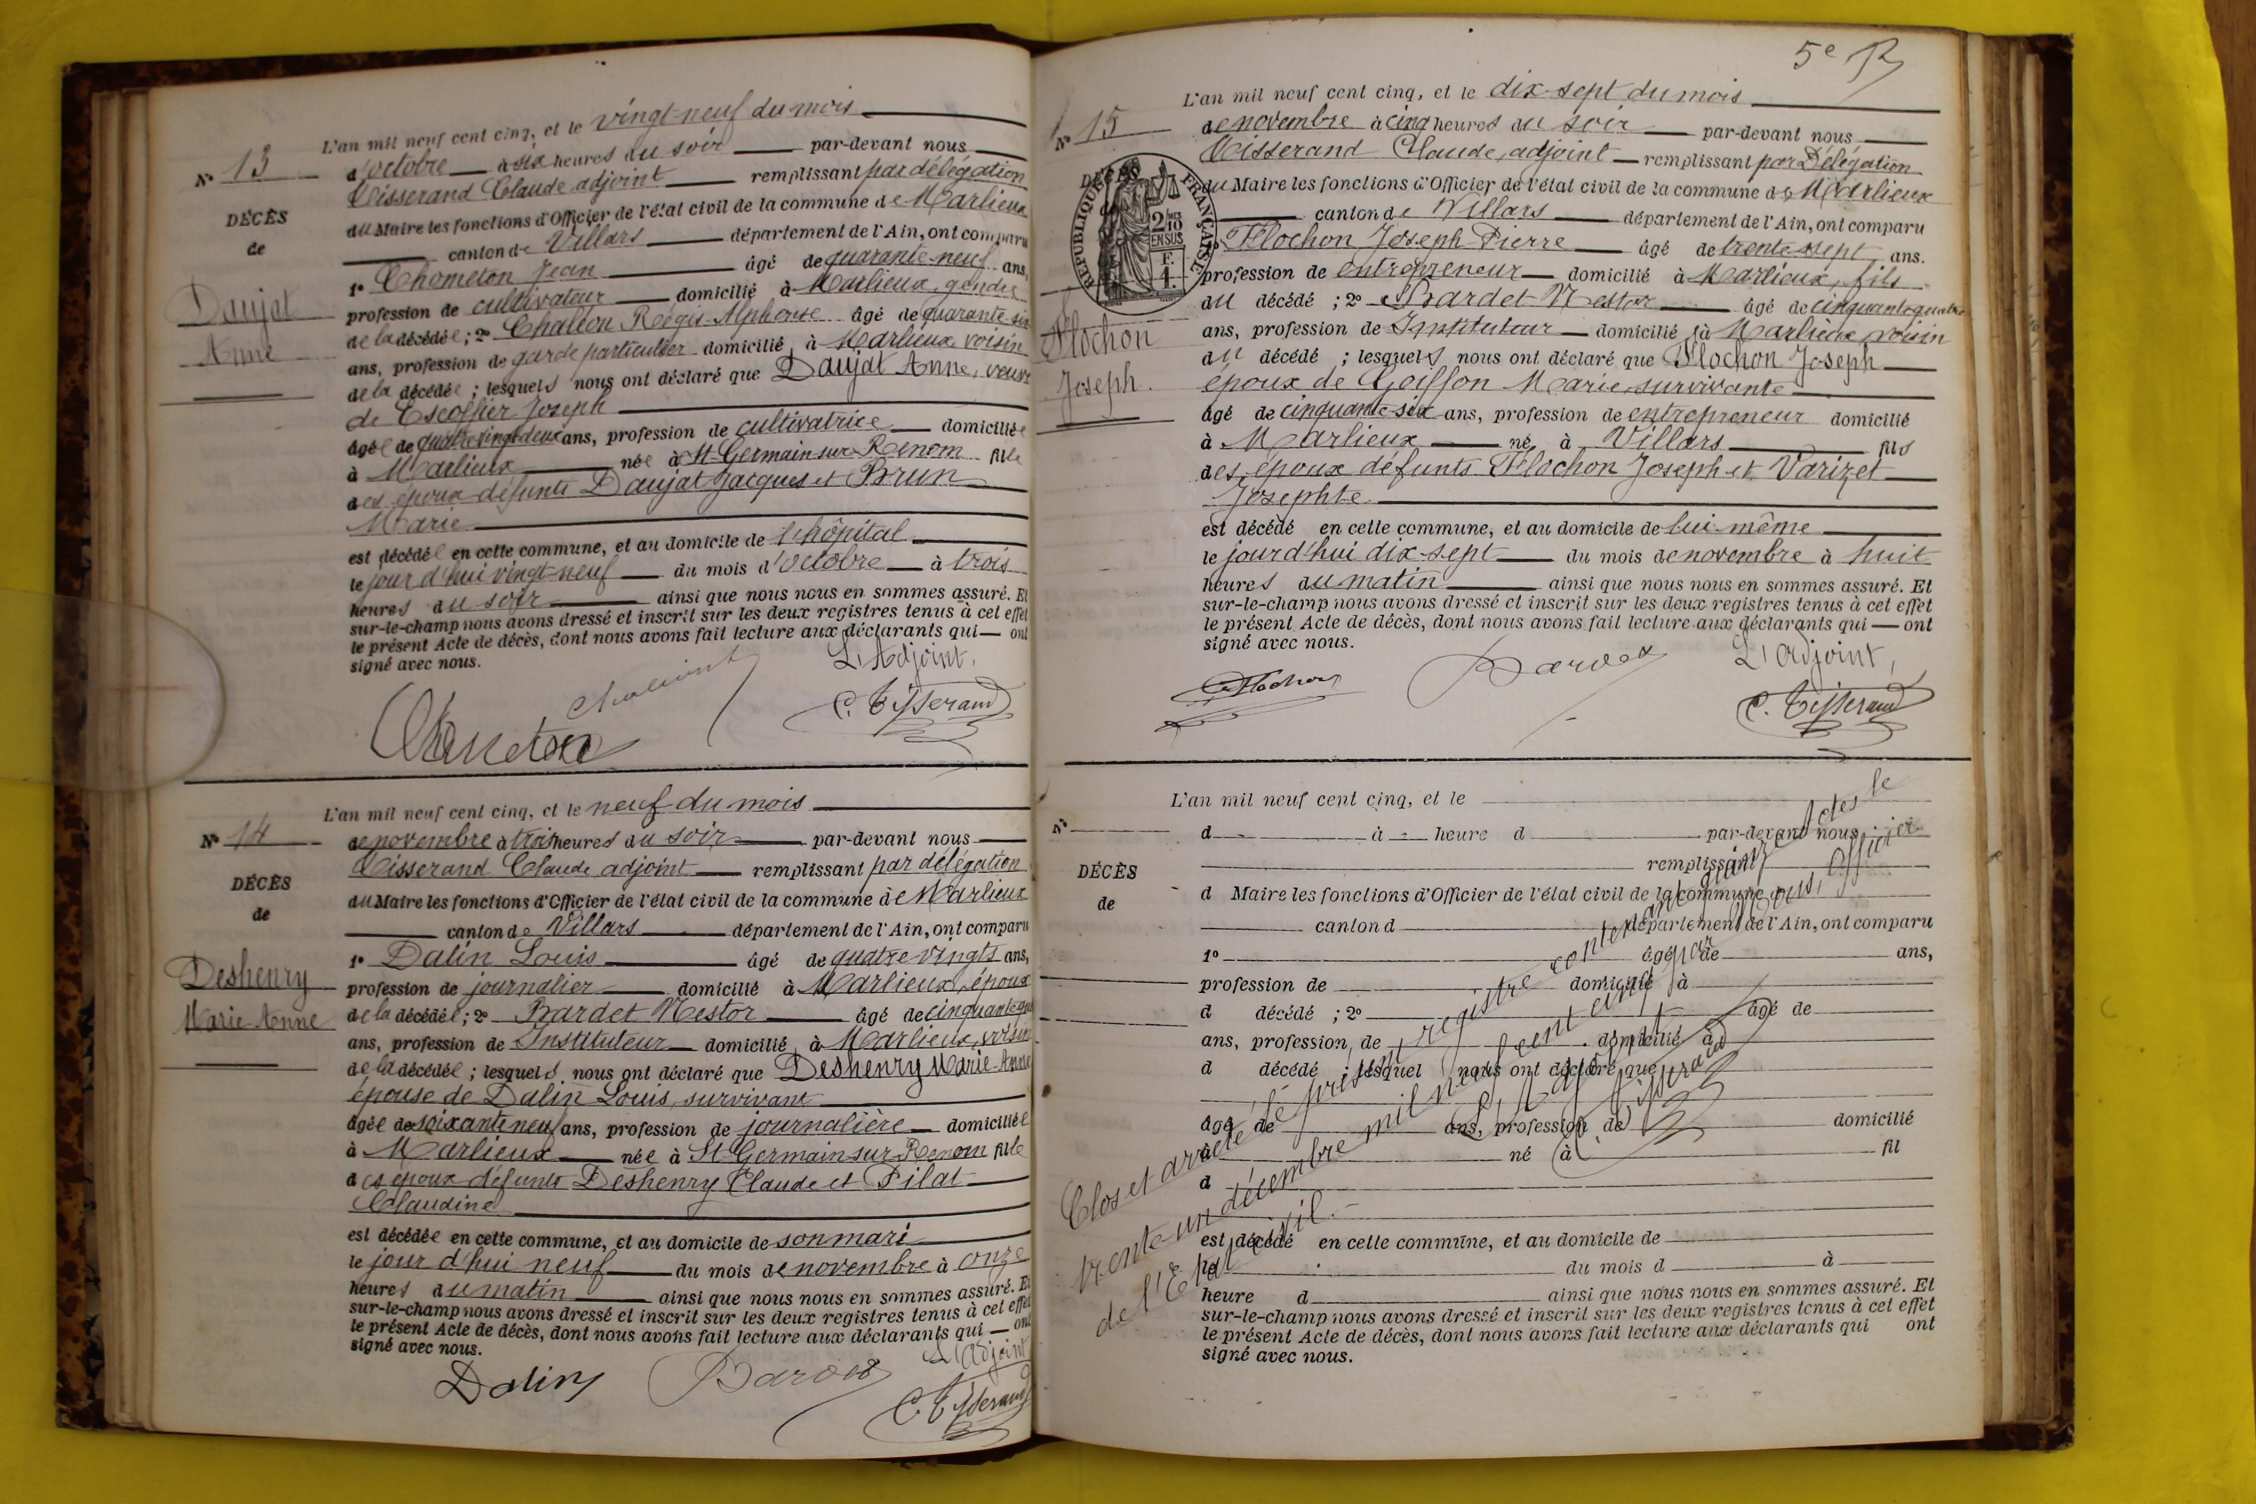 L'an mil neuf cent cinq, et le vingt-neuf du mois
N° 13
d'octobre à six heures du soir par-devant nous
Tisserand Claude adjoint remplissant par délégation
DÉCÈS
du Maire les fonctions d'Officier de l'état civil de la commune de Marlieux
de
canton de Villars département de l'Ain, ont comparu
1° Chometon Jean âgé de quarante-neuf ans,
Daujat
profession de cultivateur domicilié à Marlieux, gendre
Anne
de la décédée ; 2° Challon Régis Alphonse âgé de quarante-six
ans, profession de garde particulier domicilié à Marlieux voisin
de la décédée ; lesquels nous ont déclaré que Daujat Anne, veuve
de Escoffier Joseph
âgée de quatre vingt-deux ans, profession de cultivatrice domiciliée
à Marlieux née à St Germain sur Renom fille
des époux défunts Daujat Jacques et Brun
Marie
est décédée en cette commune, et au domicile de l'hôpital
le jour d'hui vingt-neuf du mois d'octobre à trois
heures du soir ainsi que nous nous en sommes assuré. Et
sur-le-champ nous avons dressé et inscrit sur les deux registres tenus à cet effet
le présent Acte de décès, dont nous avons fait lecture aux déclarants qui ont
signé avec nous.
L'Adjoint,
Chometon
C. Tisserand
L'an mil neuf cent cinq, et le neuf du mois
N° 14
de novembre à trois heures du soir par-devant nous
Tisserand Claude adjoint remplissant par délégation
DÉCÈS
du Maire les fonctions d'Officier de l'état civil de la commune de Marlieux
de
canton de Villars département de l'Ain, ont comparu
1° Dalin Louis âgé de quatre vingts ans,
Deshenry
profession de journalier domicilié à Marlieux, époux
Marie Anne
de la décédée ; 2° Bardet Nestor âgé de cinquante
ans, profession de Instituteur domicilié à Marlieux, voisin
de la décédée ; lesquels nous ont déclaré que Deshenry Marie-Anne
épouse de Dalin Louis, survivant
âgée de soixante neuf ans, profession de journalière domiciliée
à Marlieux née à St Germain sur Renom fille
des époux défunts Deshenry Claude et Pilat
Claudine
est décédée en cette commune, et au domicile de son mari
le jour d'hui neuf du mois de novembre à onze
heures du matin ainsi que nous nous en sommes assuré. Et
sur-le-champ nous avons dressé et inscrit sur les deux registres tenus à cet effet
le présent Acte de décès, dont nous avons fait lecture aux déclarants qui ont
signé avec nous.
L'Adjoint
Dalin Bardet
C. Tisserand
5e
L'an mil neuf cent cinq, et le dix-sept du mois
N° 15
de novembre à cinq heures du soir par-devant nous
Tisserand Claude, adjoint remplissant par Délégation
DÉCÈS
RÉPUBLIQUE FRANÇAISE
2/10 EN SUS
F. 1.
du Maire les fonctions d'Officier de l'état civil de la commune de Marlieux
canton de Villars département de l'Ain, ont comparu
Flochon Joseph Pierre âgé de trente-sept ans.
profession de entrepreneur domicilié à Marlieux, fils
du décédé ; 2° Bardet Nestor âgé de cinquante-quatre
Flochon
ans, profession de Instituteur domicilié à Marlieux voisin
Joseph.
du décédé ; lesquels nous ont déclaré que Flochon Joseph
époux de Goiffon Marie survivante
âgé de cinquante-six ans, profession de entrepreneur domicilié
à Marlieux né à Villars fils
des époux défunts Flochon Joseph et Varizet
Josephte
est décédé en cette commune, et au domicile de lui-même
le jourd'hui dix-sept du mois de novembre à huit
heures du matin ainsi que nous nous en sommes assuré. Et
sur-le-champ nous avons dressé et inscrit sur les deux registres tenus à cet effet
le présent Acte de décès, dont nous avons fait lecture aux déclarants qui ont
signé avec nous.
L'adjoint,
Flochon Bardet
C. Tisserand
L'an mil neuf cent cinq, et le
N°
d à heure d par-devant nous
remplissant
DÉCÈS
d Maire les fonctions d'Officier de l'état civil de la commune d
de
canton d département de l'Ain, ont comparu
1° âgé de ans,
profession de domicilié à
d décédé ; 2° âgé de
ans, profession de domicilié à
d décédé ; lesquel nous ont déclaré que
âgé de ans, profession de domicilié
à né à fil
d
est décédé en cette commune, et au domicile de
le du mois d à
heure d ainsi que nous nous en sommes assuré. Et
sur-le-champ nous avons dressé et inscrit sur les deux registres tenus à cet effet
le présent Acte de décès, dont nous avons fait lecture aux déclarants qui ont
signé avec nous.
Clos et arrêté le présent registre contenant quinze actes le
trente un décembre mil neuf cent cinq par nous, officier
de l'Etat civil.
L'Adjoint
C. Tisserand